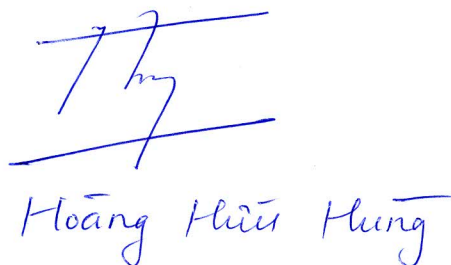 Hoàng Hữu Hùng